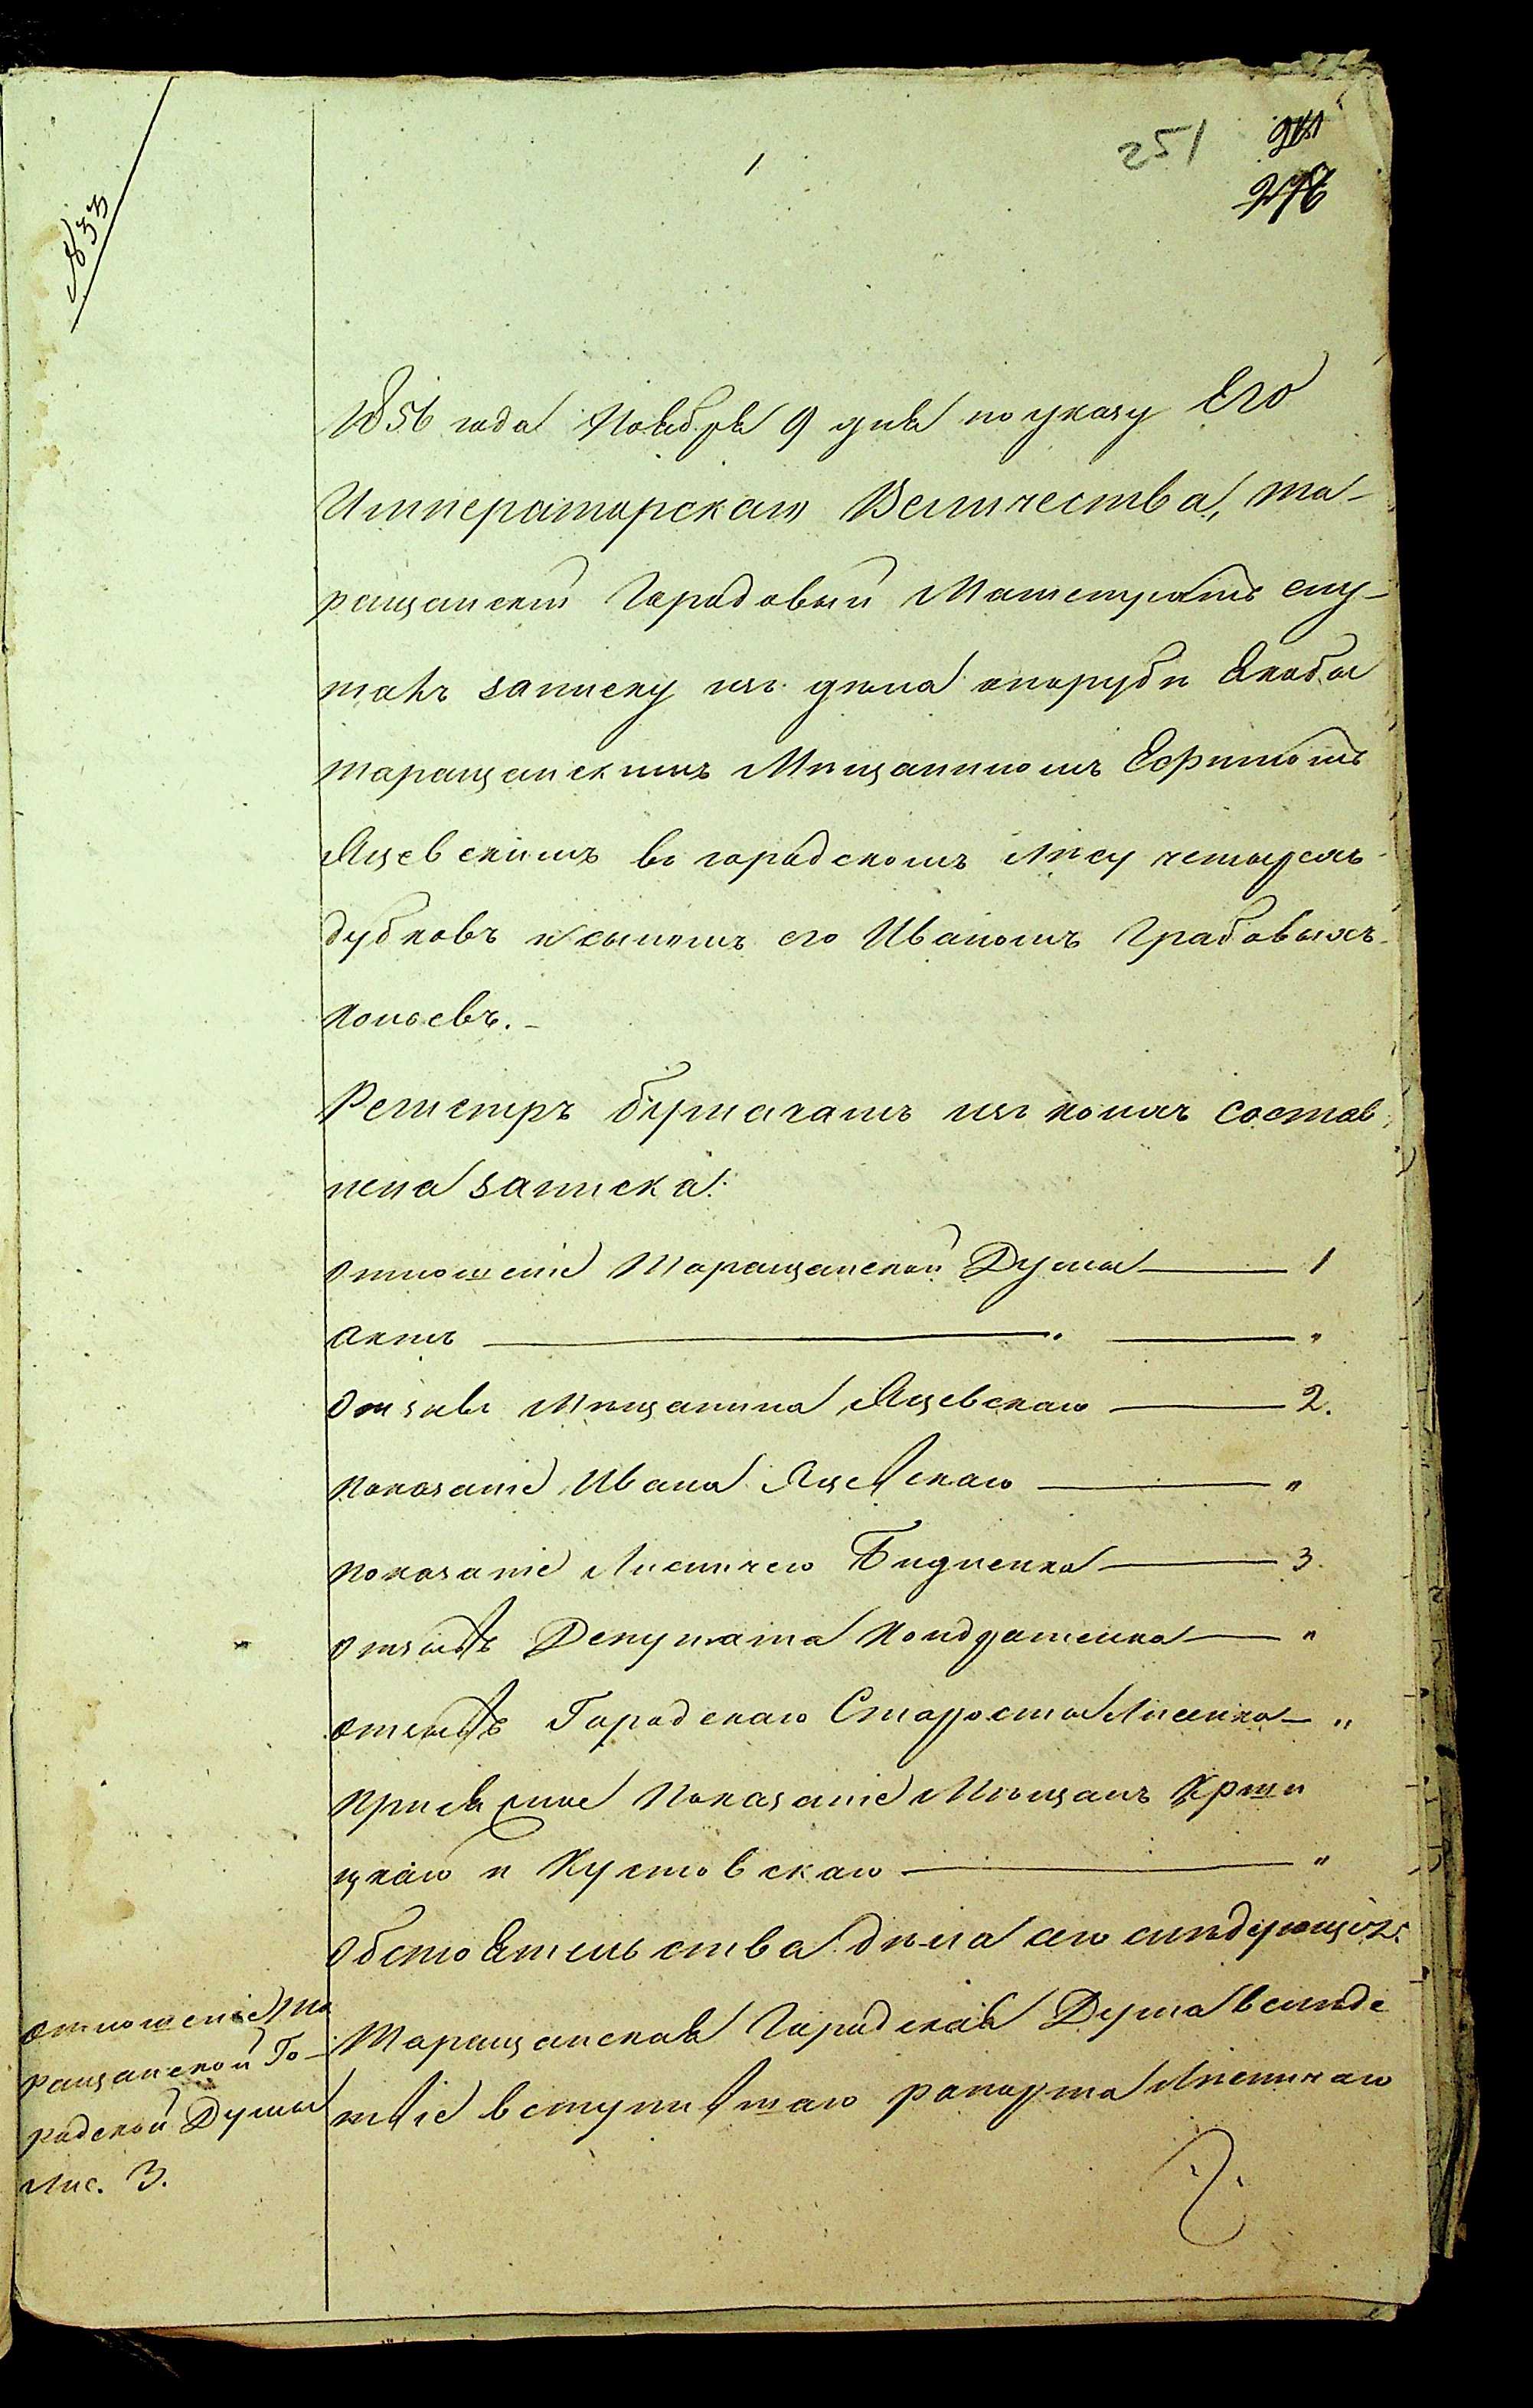 251
№ 33
1856 года Ноября 9 дня по указу Его
Императорскаго Величества, Та-
ращанскій Городовый Магистратъ слу-
шалъ записку изъ дѣла опорубки якобы
таращанскимъ Мѣщаниномъ Ефимомъ
Яцевскимъ въ городскомъ лѣсу четырехъ
дубковъ и сыномъ его Иваномъ Грабовыхъ
кольевъ.
Регистръ бумагамъ изъ коихъ состав
лена записка:
Отношеніе Таращанской Думы — 1
Актъ — "
Отзывъ Мѣщанина Яцевскаго — 2.
Показаніе Ивана Яцевскаго — "
Показаніе Лесничего Бидненка — 3.
Отзывъ Депутата Кондратенка — "
Отзывъ Городскаго Старосты Лисенка — "
Присяжное Показаніе Мѣщанъ
цкаго и Кустовскаго — "
Обстоятельства дѣла сего слѣдующія:
Таращанская Городская Дума вслѣд-
ствіе вступившаго рапорта Лѣсничаго
Отношеніе Та
ращанской Го-
родской Думы
Лис. 3.